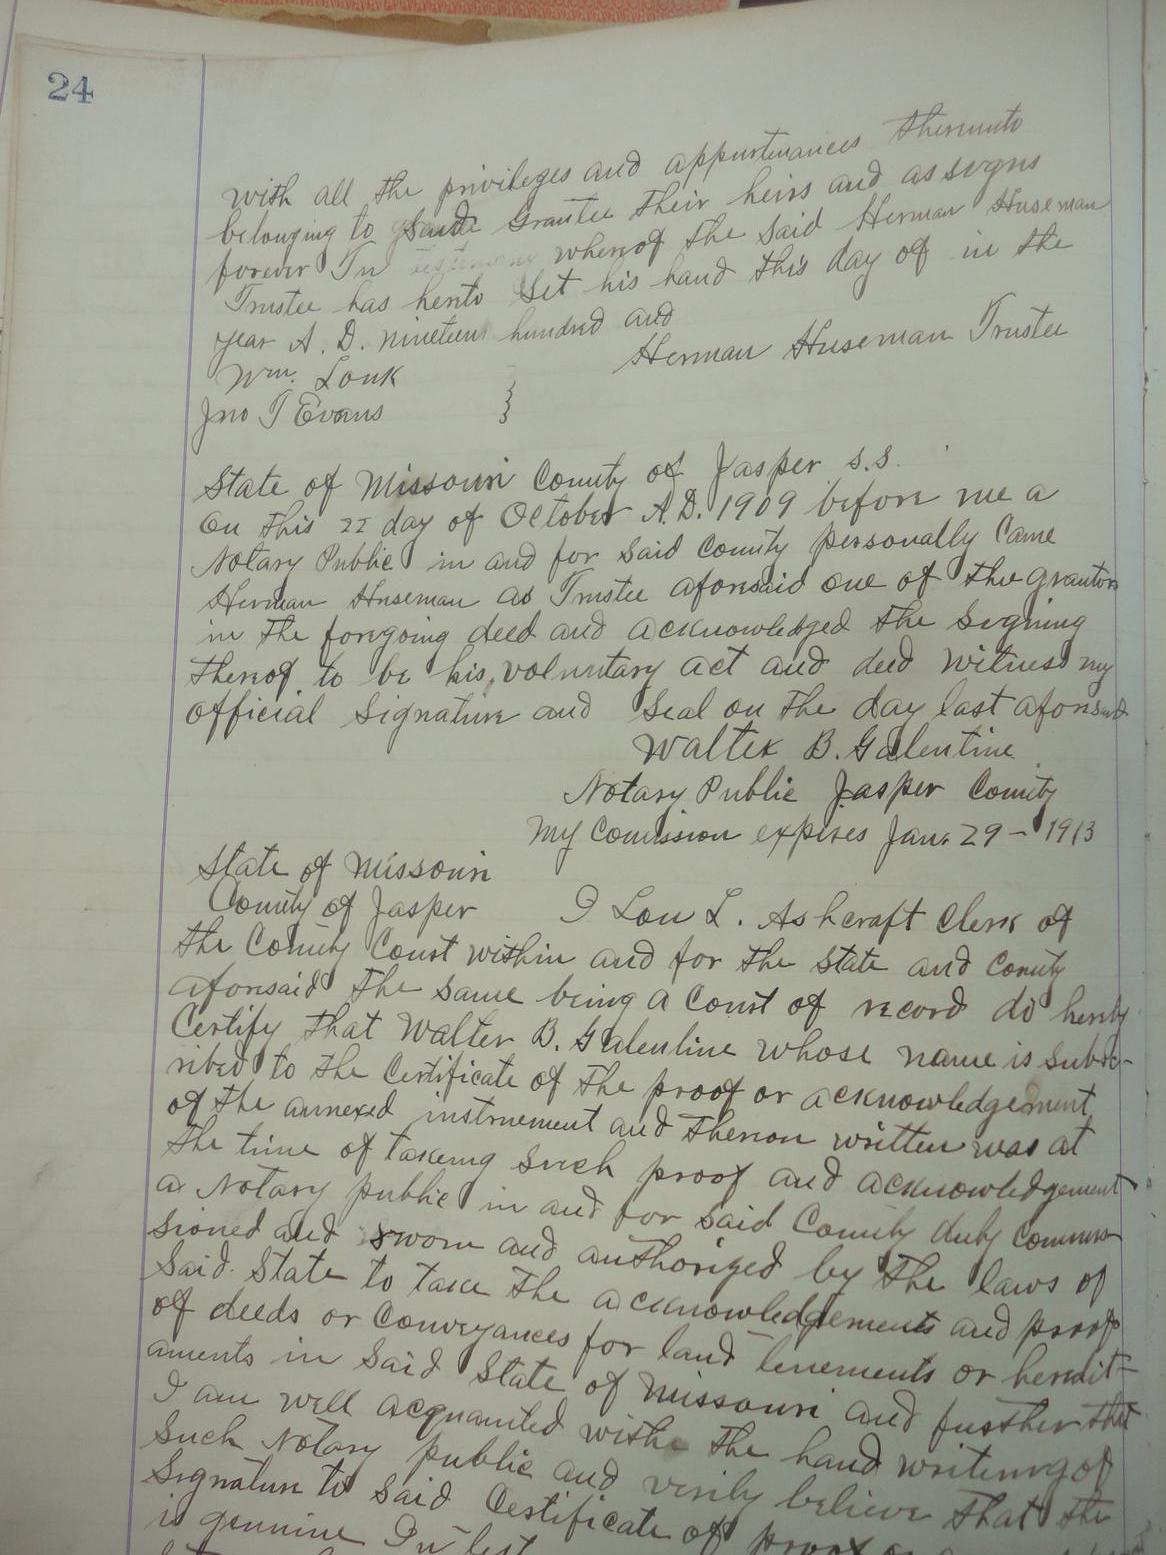 24
with all the privileges and appurtenances thereunto
belonging to Said Grantee their heirs and assigns
forever In testimony whereof the Said Herman Huseman
Trustee has herto Set his hand this day of in the
year A. D. nineteen hundred and
Herman Huseman Trustee
Wm. Louk
Jno T Evans
State of Missouri County of Jasper s.s.
On this 22 day of October A.D. 1909 before me a
Notary Public in and for Said County personally Came
Herman Huseman as Trustee aforesaid one of the grantors
in the foregoing deed and acknowledged the Signing
thereof to be his voluntary act and deed witness my
official Signature and Seal on the day last aforesaid
Walter B. Galentine
Notary Public Jasper County
My Comission expires Jan. 29 - 1913
State of Missouri
County of Jasper I Lou L. Ashcraft Clerk of
the County Court within and for the State and County
aforesaid the same being a Court of record do hereby
Certify that Walter B. Galentine whose name is subsc-
ribed to the Certificate of the proof or acknowledgement
of the annexed instruement and thereon written was at
the time of taking Such proof and acknowledgement
a Notary public in and for said County duly commis
sioned and sworn and authorized by the laws of
Said State to take the acknowledgements and proof
of deeds or Conveyances for land tenements or heredit-
aments in Said State of Missouri and further that
I am well acquainted withe the hand writing of
Such Notary public and verily believe that the
Signature to Said Certificate of proof or
is genuine In